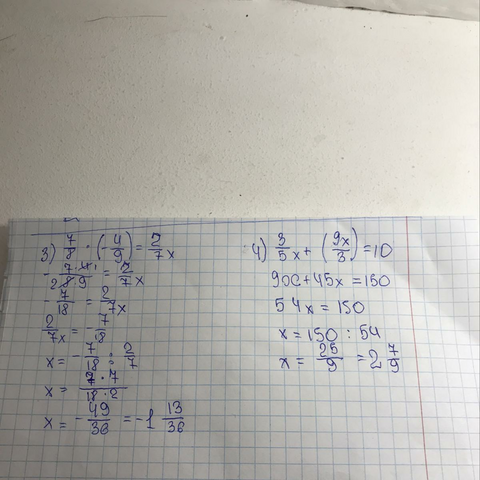 3) 7/8 · (-4/9) = 2/7 x
- 7·4¹/₂8·9 = 2/7 x
- 7/18 = 2/7x
2/7x = - 7/18
x = - 7/18 : 2/7
x = 7·7/18·2
x = - 49/36 = -1 13/36
4) 3/5 x + (9x/3) = 10
9x + 45x = 150
54x = 150
x = 150 : 54
x = 25/9 = 2 7/9